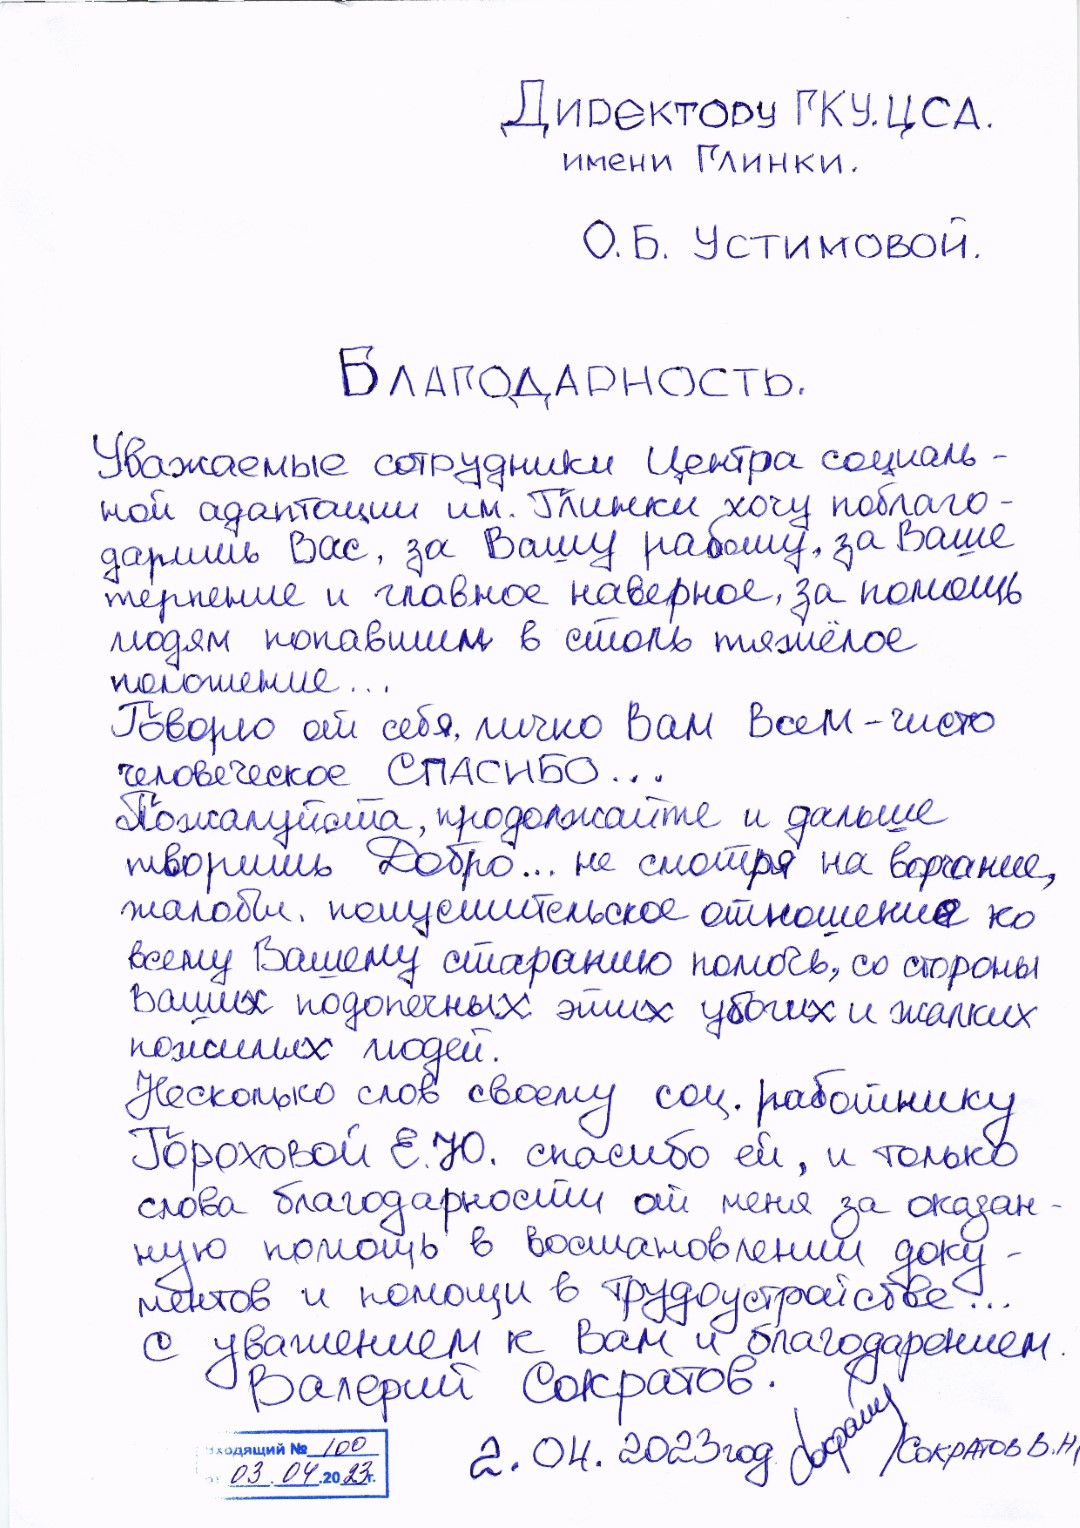 Директору ГКУ.ЦСА.
имени Глинки.
О.Б. Устимовой.
Благодарность.
Уважаемые сотрудники Центра социаль-
ной адаптации им. Глинки хочу поблаго-
дарить Вас, за Вашу работу, за Ваше
терпение и главное наверное, за помощь
людям попавшим в столь тяжёлое
положение...
Говорю от себя, лично Вам Всем - чисто
человеческое СПАСИБО...
Пожалуйста, продолжайте и дальше
творить Добро... не смотря на ворчание,
жалобы. потребительское отношение ко
всему Вашему старанию помочь, со стороны
Ваших подопечных этих убогих и жалких
пожилых людей.
Несколько слов своему соц. работнику
Гороховой Е.Ю. спасибо ей, и только
слова благодарности от меня за оказан-
ную помощь в восстановлении доку-
ментов и помощи в трудоустройстве...
С уважением к Вам и благодарением.
Валерий Сократов.
2.04.2023год /Сократов В.Н,
входящий № 100
от 03.04.2023г.